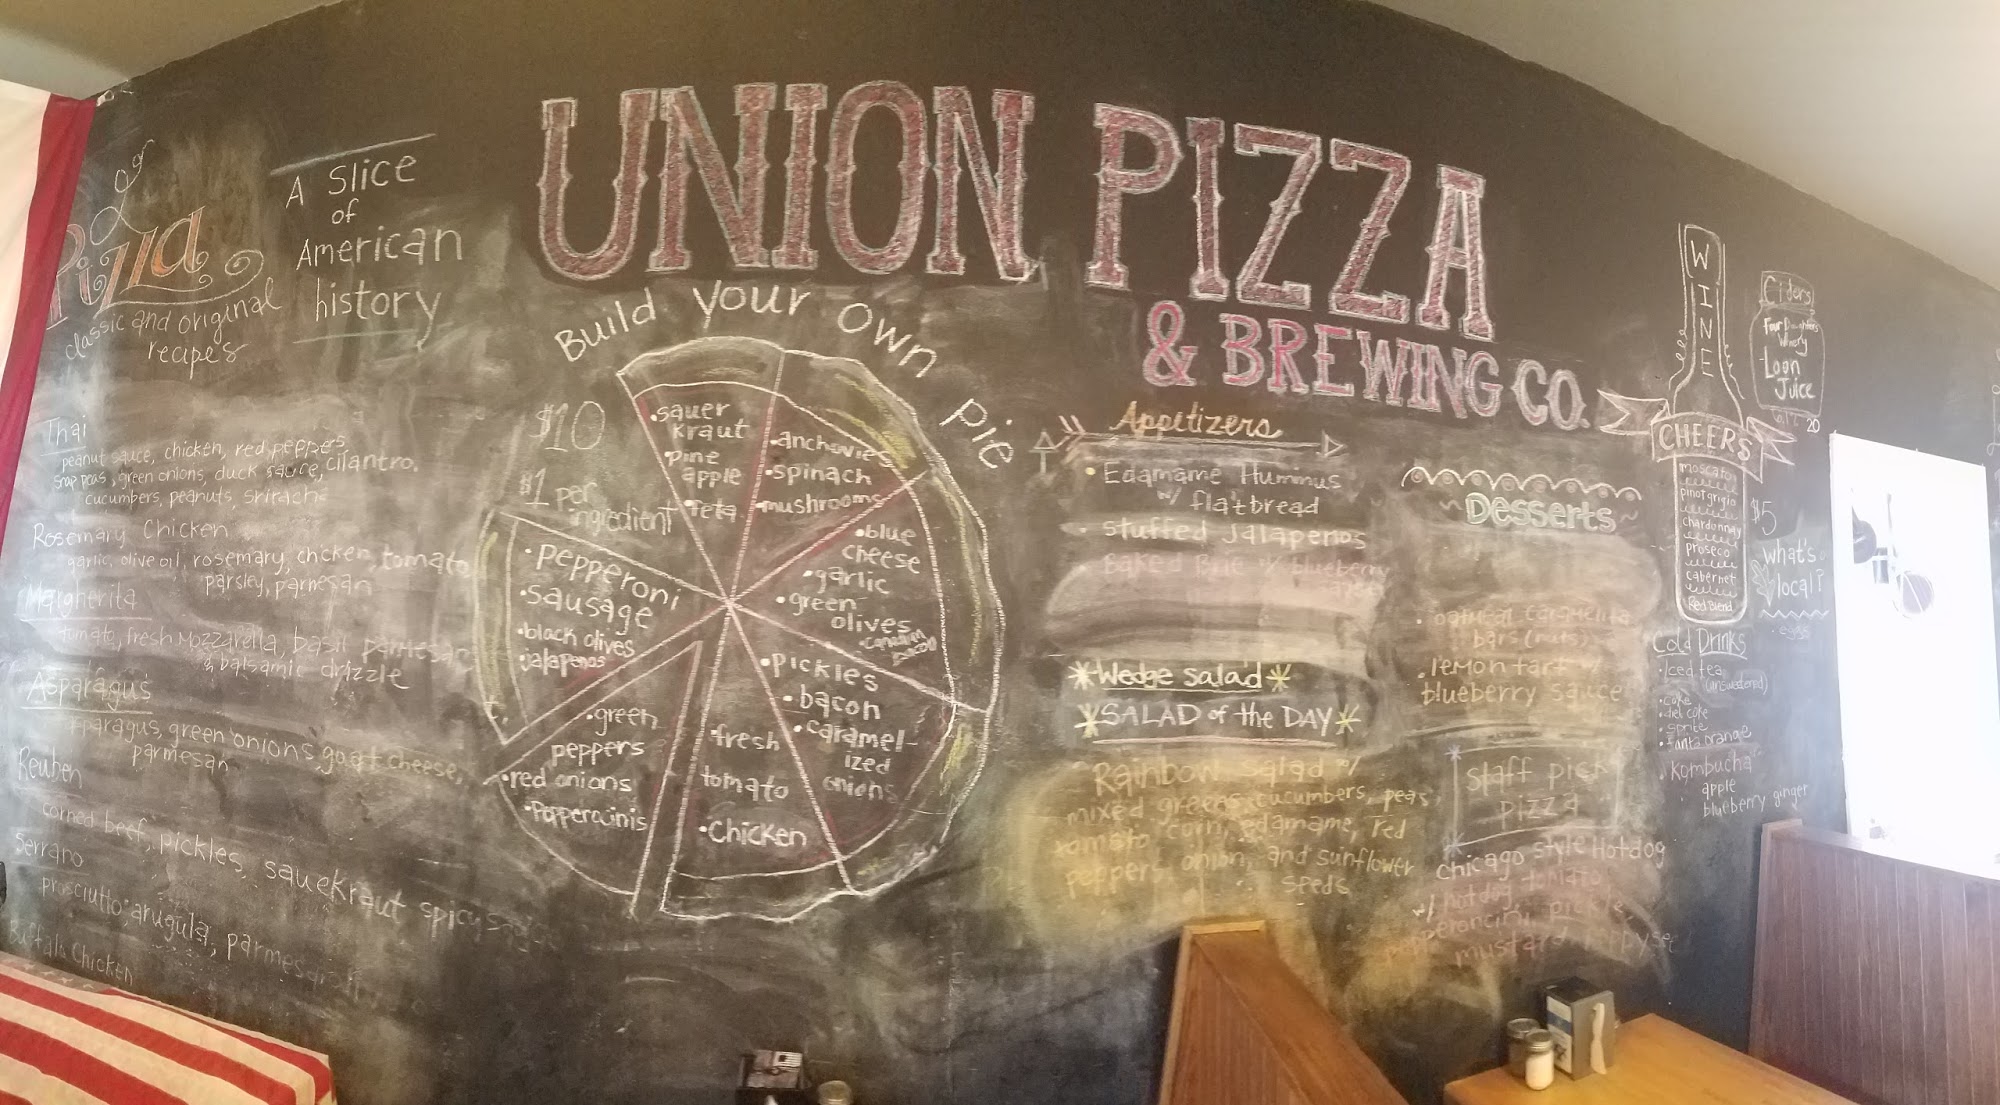 UNION PIZZA
& BREWING CO.
of
Pizza
classic and original
recipes
A Slice
of
American
history
Thai
peanut sauce, chicken, red peppers,
snap peas, green onions, duck sauce, cilantro,
cucumbers, peanuts, sriracha
Rosemary Chicken
garlic, olive oil, rosemary, chicken, tomato,
parsley, parmesan
Margherita
tomato, fresh mozzarella, basil parmesan
& balsamic drizzle
Asparagus
asparagus, green onions, goat cheese,
parmesan
Reuben
corned beef, pickles, sauekraut spicy
Serrano
prosciutto, arugula, parmesan
Buffalo Chicken
Build Your Own Pie
$10
$1 per
ingredient
•sauer
kraut
•pine
apple
•feta
•anchovies
•spinach
•mushrooms
•blue
cheese
•garlic
•green
olives
•canadian
bacon
•pickles
•bacon
•caramel-
ized
onions
•fresh
tomato
•chicken
•green
peppers
•red onions
•Pepperoncinis
•pepperoni
•sausage
•black olives
•jalapenos
Appetizers
• Edamame Hummus
w/ flatbread
• stuffed Jalapenos
Baked Brie w/ blueberry
Wedge Salad
SALAD of the DAY
Rainbow Salad w/
mixed greens, cucumbers, peas,
tomato, corn, edamame, red
peppers, onion, and sunflower
seeds
Desserts
• oatmeal caramelita
bars (nuts)
• lemon tart w/
blueberry sauce
Staff pick
pizza
Chicago style Hotdog
w/ hotdog, tomato,
pepperoncini, pickle,
mustard, poppyseed
WINE
CHEERS
moscato
pinot grigio
chardonnay
prosecco
cabernet
Red Blend
$5
Ciders
Four Daughters
Winery
-Loon
Juice
what's
local?
• eggs
Cold Drinks
• Iced tea
(unsweetened)
• coke
• diet coke
• sprite
• fanta orange
• kombucha
apple
blueberry ginger